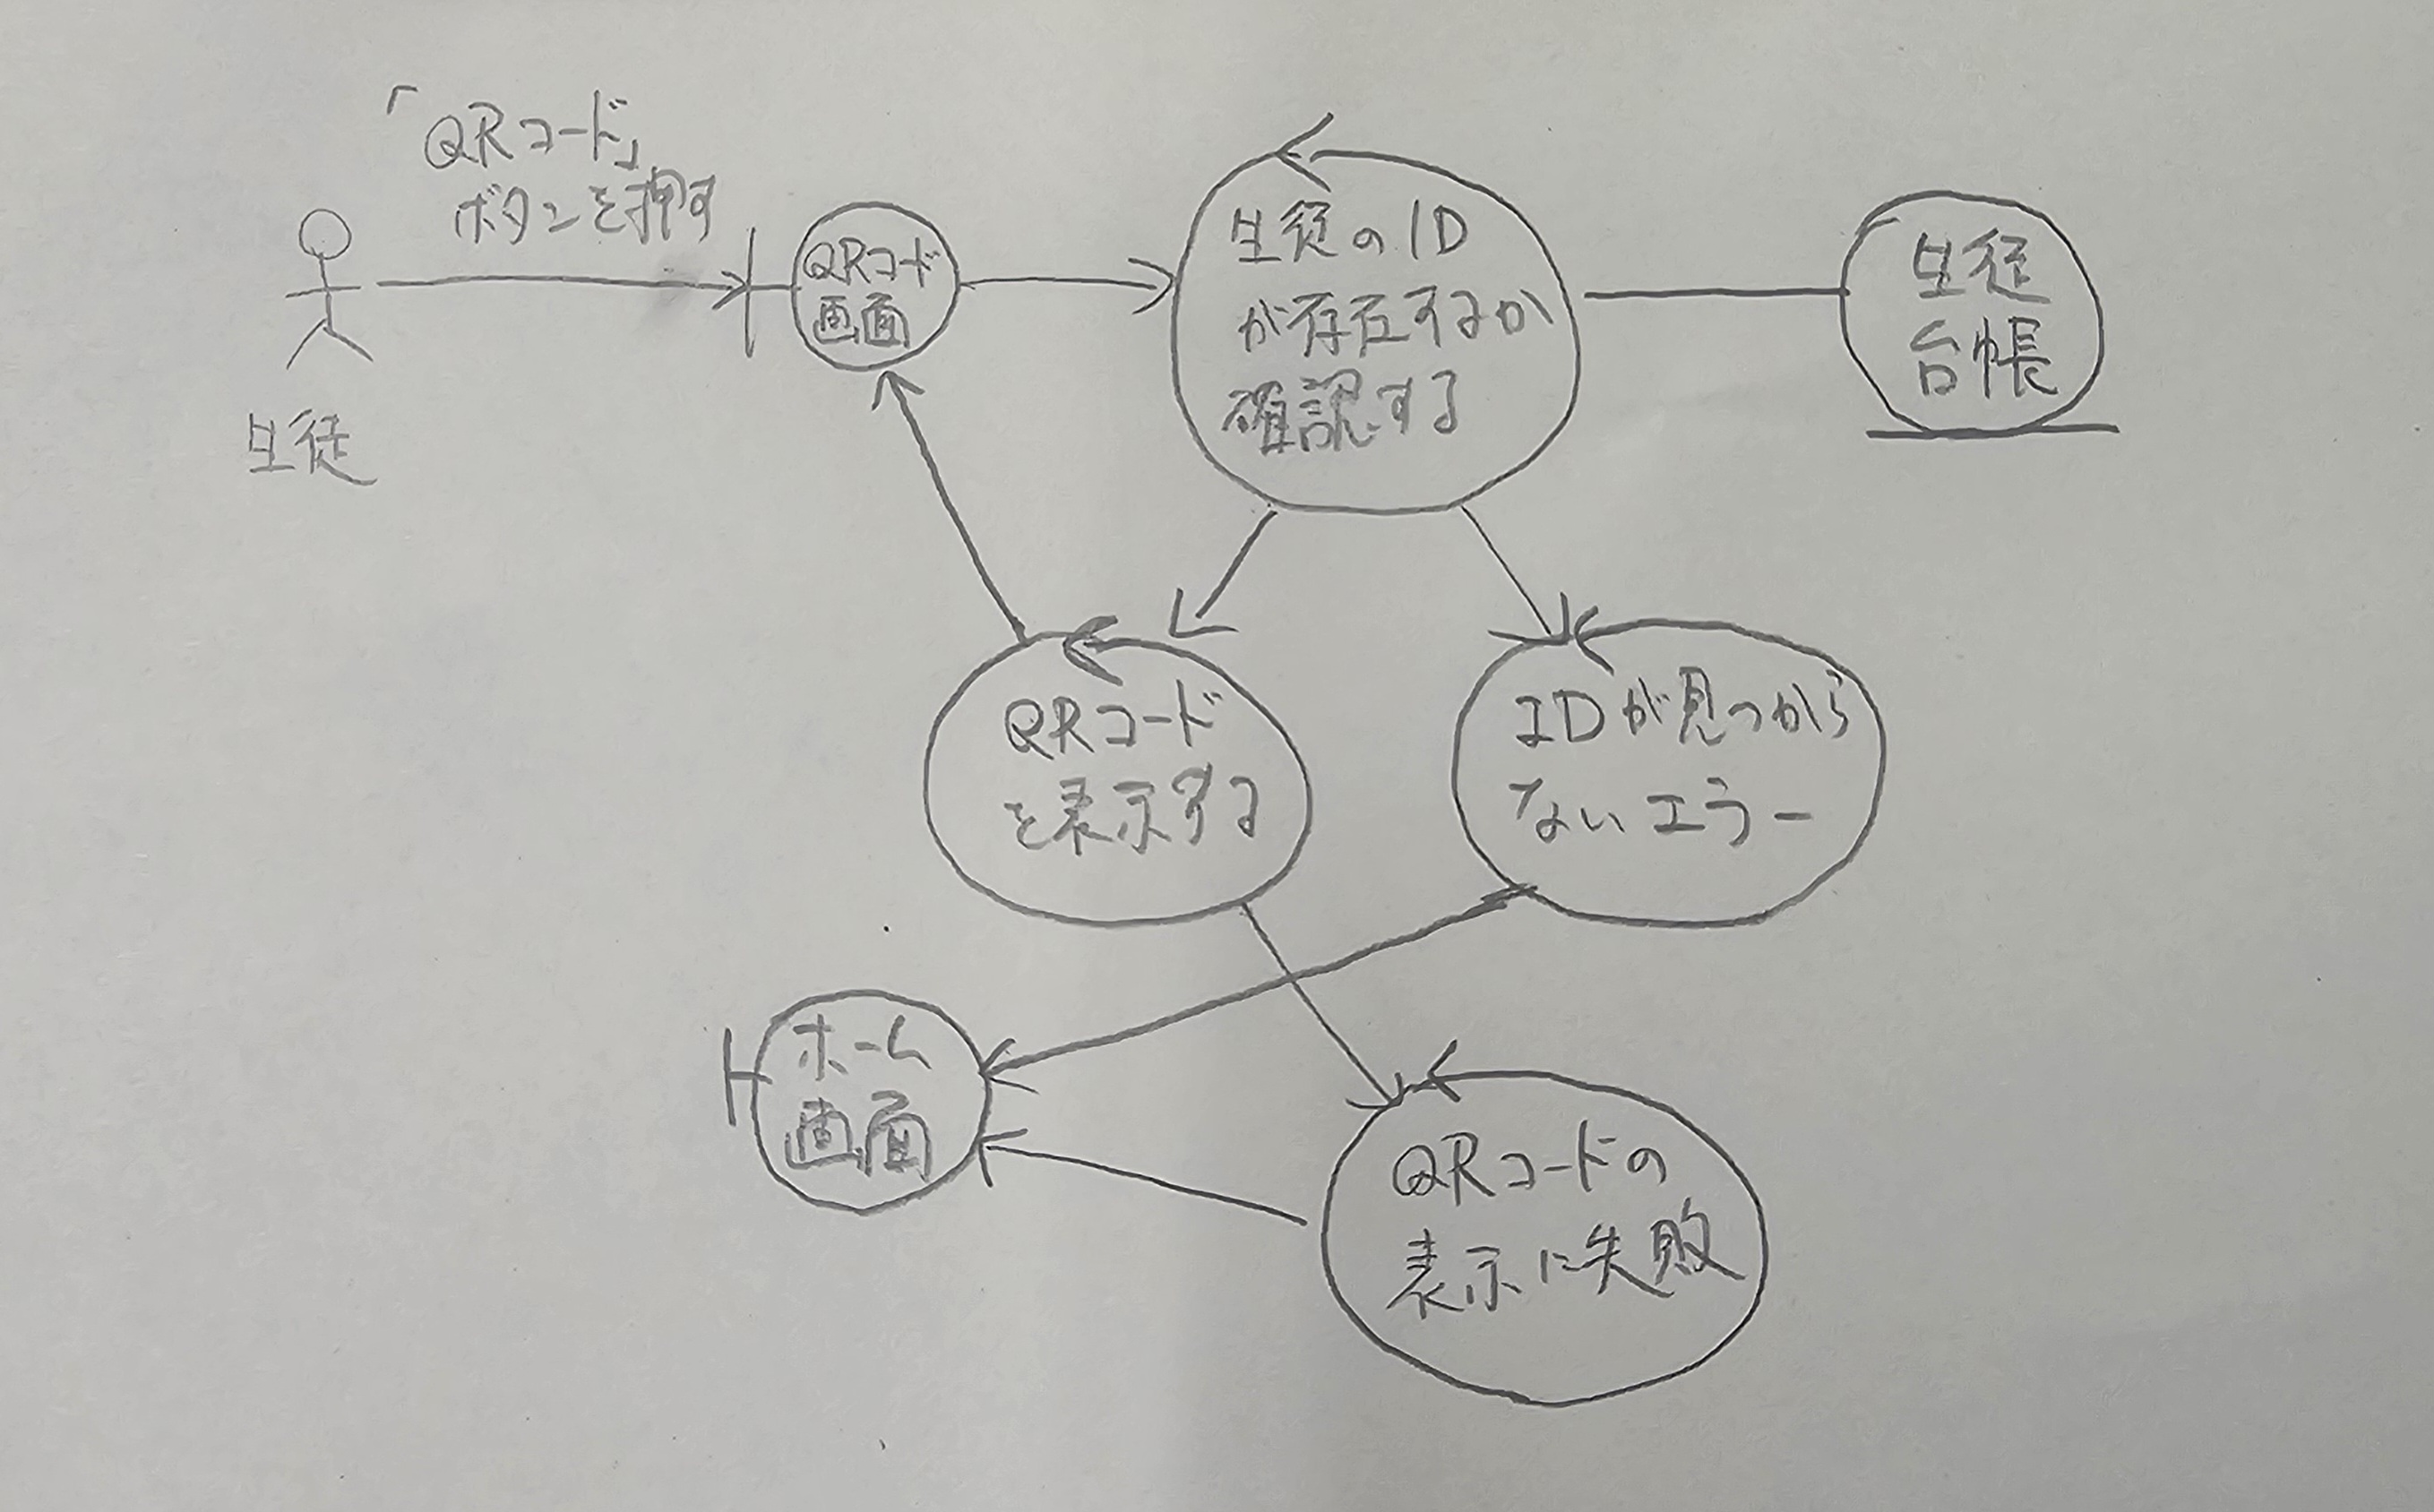 「QRコード」
ボタンを押す
生徒
QRコード
画面
生徒のID
が存在するか
確認する
生徒
台帳
QRコード
を表示する
IDが見つから
ないエラー
ホーム
画面
QRコードの
表示に失敗